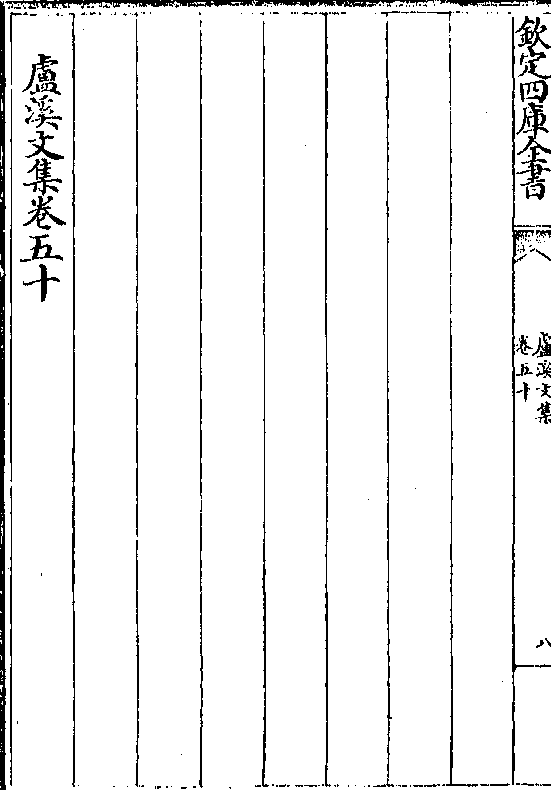 欽定四庫全書
盧溪文集
卷五十
八
盧溪文集卷五十